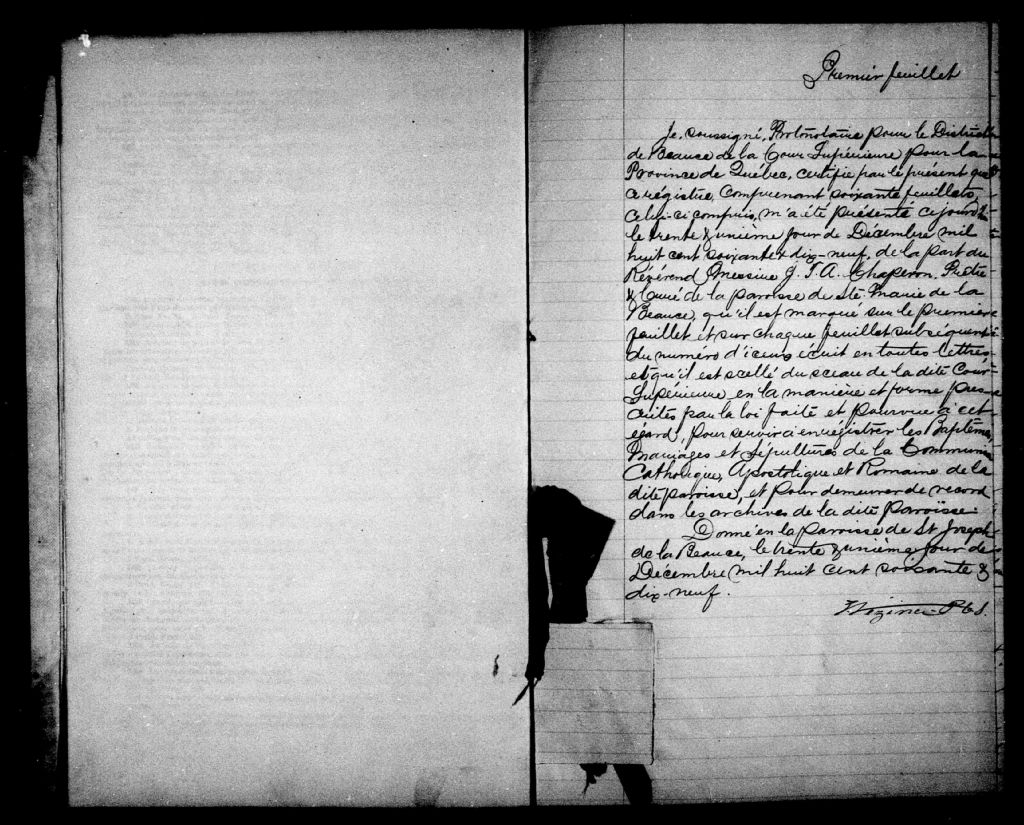 Premier feuillet
Je, soussigné, Protonotaire pour le District
de Beauce de la Cour Supérieure pour la
Province de Québec, certifie par le présent que
ce régistre, comprenant soixante feuillets,
celui-ci compris, m'a été présenté ce jourd'hui
le trente & unième jour de Décembre mil
huit cent soixante & dix-neuf, de la part du
Révérend Messire J. T. A. Chaperon, Prêtre
& Curé de la paroisse de Ste Marie de la
Beauce, qu'il est marqué sur le premier
feuillet et sur chaque feuillet subséquent
du numéro d'iceux écrit en toutes lettres
et qu'il est scellé du sceau de la dite Cour
Supérieure en la manière et forme pres-
crites par la loi faite et pourvue à cet
égard, pour servir à enregistrer les Baptêmes,
Mariages et Sépultures de la Communion
Catholique, Apostolique et Romaine de la
dite paroisse, et pour demeurer de record
dans les archives de la dite Paroisse.
Donné en la paroisse de St Joseph
de la Beauce, le trente & unième jour de
Décembre mil huit cent soixante &
dix-neuf.